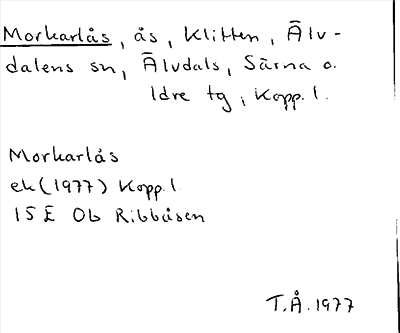 Morkarlås, ås, Klitten, Älv-
dalens sn, Älvdals, Särna o.
Idre tg, Kopp. l.
Morkarlås
ek (1977) Kopp. l
15 E Ob Ribbåsen
T.Å. 1977